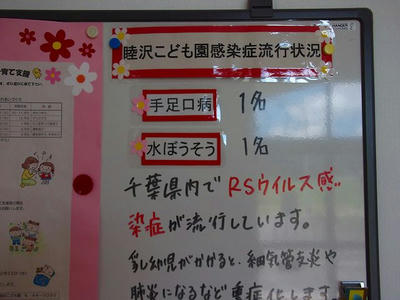 睦沢こども園感染症流行状況
手足口病 1名
水ぼうそう 1名
千葉県内でRSウイルス感
染症が流行しています。
乳幼児がかかると、細気管支炎や
肺炎になるなど重症化します